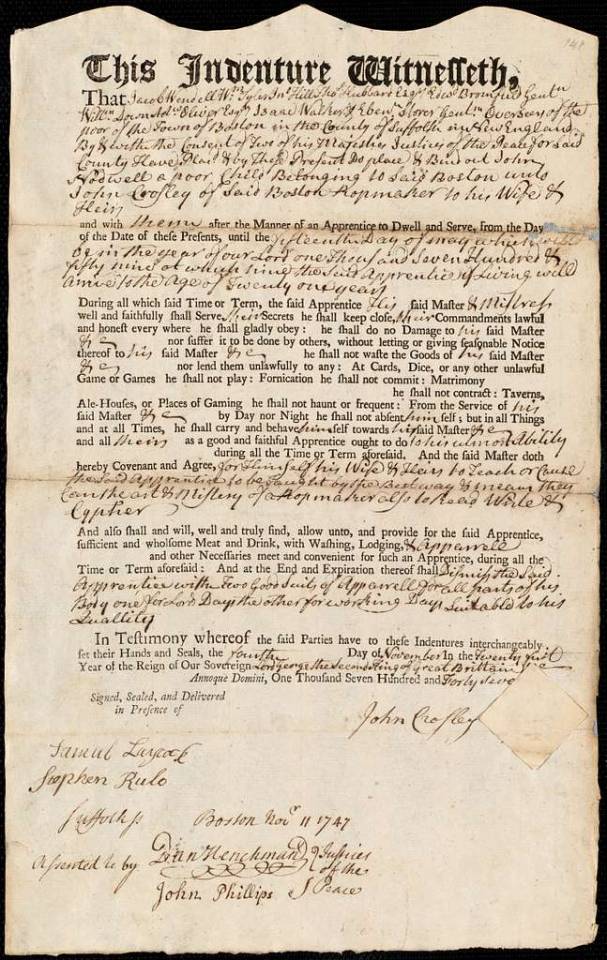 This Indenture Witnesseth,
That Jacob Wendell Wm Tyler Jno Hill Tho Hubbart Esqrs Edwd Bromfield Gentn
Willm Downe Andw Oliver Esqrs Isaac Walker & Ebenr Storer Gentn Overseers of the
poor of the Town of Boston in the County of Suffolk in New England
By & with the Consent of Two of his Majesties Justices of the Peace for said
County Have Plac'd & by These Present Do place & Bind out John
Nodwell a poor Child Belonging to Said Boston unto
John Crosley of Said Boston Ropmaker to his Wife &
Heirs
and with them after the Manner of an Apprentice to Dwell and Serve, from the Day
of the Date of these Presents, until the fifteenth Day of may which will
be in the year of our Lord one Thousand Seven Hundred &
fifty nine at which time the said Apprentice if Living will
arrive to the Age of Twenty one years
During all which said Time or Term, the said Apprentice His said Master & Mistress
well and faithfully shall Serve, their Secrets he shall keep close, their Commandments lawful
and honest every where he shall gladly obey: he shall do no Damage to his said Master
&c nor suffer it to be done by others, without letting or giving seasonable Notice
thereof to his said Master &c he shall not waste the Goods of his said Master
&c nor lend them unlawfully to any: At Cards, Dice, or any other unlawful
Game or Games he shall not play: Fornication he shall not commit: Matrimony
he shall not contract: Taverns,
Ale-Houses, or Places of Gaming he shall not haunt or frequent: From the Service of his
said Master &c by Day nor Night he shall not absent him self; but in all Things
and at all Times, he shall carry and behave him self towards his said Master &c
and all theirs as a good and faithful Apprentice ought to do to his utmost Ability
during all the Time or Term aforesaid. And the said Master doth
hereby Covenant and Agree, for Himself his Wife & Heirs to Teach or Cause
the said Apprentice to be Taught by the Best way & means they
can the art & Mistery of a Ropmaker also to Read Write &
Cypher
And also shall and will, well and truly find, allow unto, and provide for the said Apprentice,
sufficient and wholsome Meat and Drink, with Washing, Lodging, & Apparrell
and other Necessaries meet and convenient for such an Apprentice, during all the
Time or Term aforesaid: And at the End and Expiration thereof shall Dismiss the Said
Apprentice with Two Good Suits of Apparrell for all parts of his
Body one for Lord Days the other for working Days Suitable to his
Quallity
In Testimony whereof the said Parties have to these Indentures interchangeably
set their Hands and Seals, the fourth Day of November In the Twenty first
Year of the Reign of Our Sovereign Lord George the Second King of Great Brittain &c
Annoque Domini, One Thousand Seven Hundred and Forty Seve
Signed, Sealed, and Delivered
in Presence of
John Crosley
Samuel Laycock
Stephen Rulo
Suffolk ss Boston Novr 11 1747
Assented to by Dan Henchman Justices
of the
John Phillips Peace